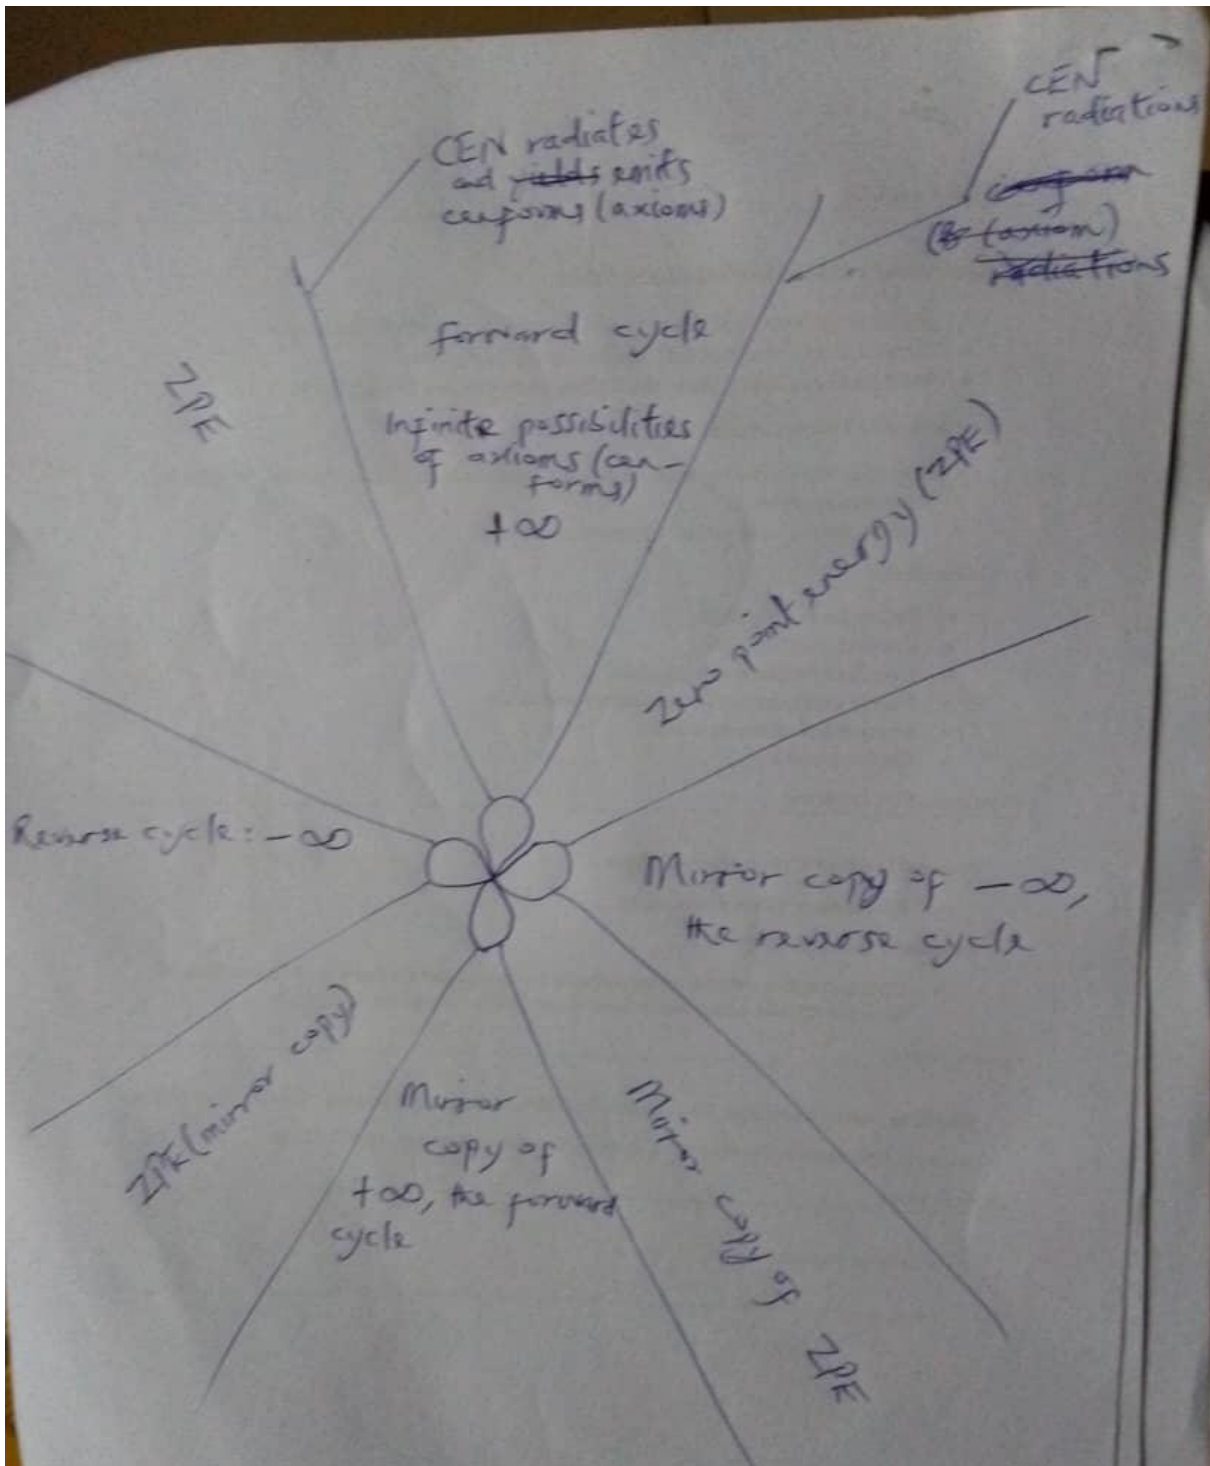 CEN radiates
and yields emits
cenforms (axioms)
CEN
radiations
(axiom)
radiations
forward cycle
ZPE
Infinite possibilities
of axioms (cen-
forms)
+∞
Zero point energy (ZPE)
Reverse cycle: -∞
Mirror copy of -∞,
the reverse cycle
ZPE (mirror copy)
Mirror
copy of
+∞, the forward
cycle
Mirror copy of ZPE